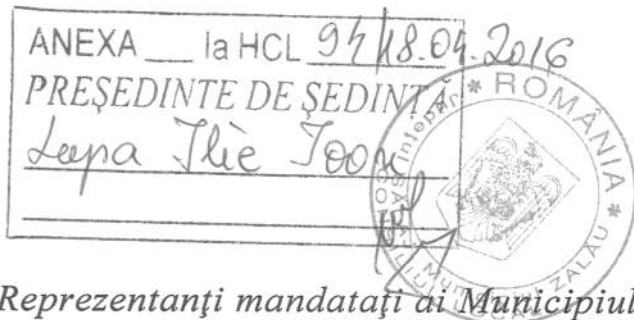 ANEXA __ la HCL 94/18.04.2016
PREŞEDINTE DE ŞEDINŢĂ
Lupa Ilie Ioan
* ROMÂNIA *
ZALĂU
Reprezentanţi mandataţi ai Municipiul